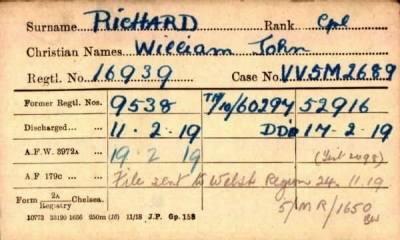 Surname RICHARD Rank Cpl
Christian Names William John
Regtl. No. 16939 Case No. VVSM2689
Former Regtl. Nos. 9538 TR/10/60297 52916
Discharged 11.2.19 DD 17-2-19
A.F.W. 3972A 19.2.19
A.F. 179c. File sent to Welsh Region 24.11.19
Form 2A Registry Chelsea. 5/MR/1650
10773 33190 1656 250m (16) 11/18 J.P. Gp. 158